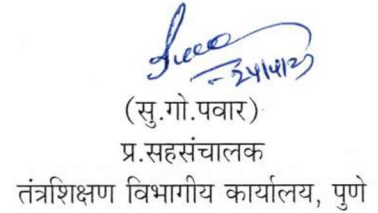 (सु.गो.पवार)
प्र.सहसंचालक
तंत्रशिक्षण विभागीय कार्यालय, पुणे